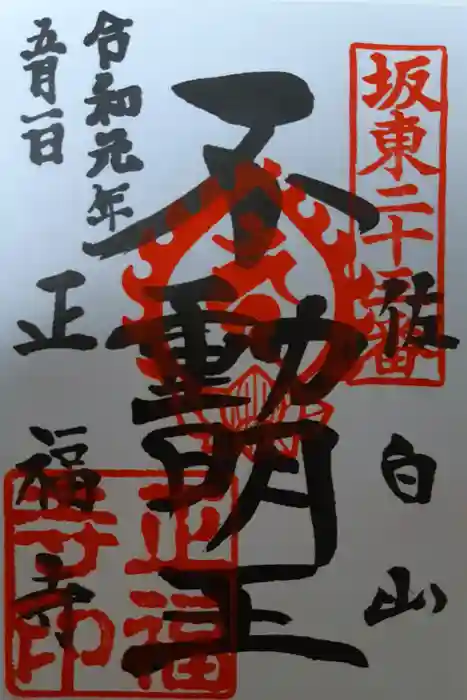 坂東二十三番
佐白山
不動明王
正福寺
令和元年
五月一日
正福
寺印